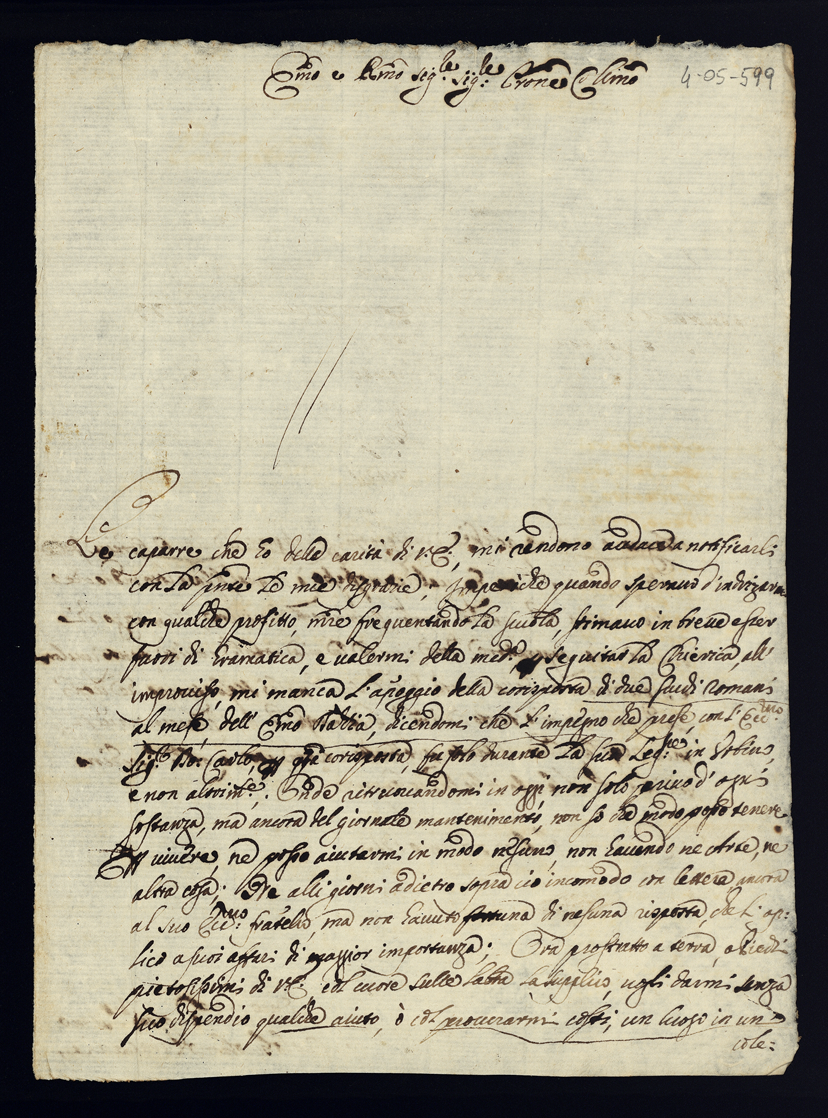 Emo e Rmo Sig.le Sig.le Prone Colmo
4-05-599
Le caparre che ho della carità di V.E., mi rendono audace a notificarli
con la le mie disgrazie, quando speravo d'indrizarmi
con qualche profitto, mre frequentando la scuola, stimavo in breve esser
fuori di Gramatica, e valermi della med.a seguitar la Chierica, all'
improviso, mi manca l'apoggio della corisposta di due scudi romani
al mese, dell' Emo Stabia, dicendomi che l'impegno che prese, con l'Ecc.mo
Sig.e D. Carlo, corisposta, fu solo durante la sua Leg.ne in Urbino,
e non altrim.e,. Onde ritruvandomi in oggi non solo privo d'ogni
sostanza, ma ancora del giornale mantenimento, non so che modo posso tenere
vivere, ne posso aiutarmi in modo nesuno, non havendo ne Arte, ne
altra cosa. Ne alli giorni adietro sopra ciò incomodo con lettera ancora
al suo Ecc.mo fratello, ma non havuto fortuna di nesuna risposta che l'ap=
lico a suoi affari di maggior importanza; Ora prostrato a terra, a piedi
pietosissimi di V.E. col cuore sulle labra la suplico, vogli darmi senza
suo dispendio qualche aiuto, ò col procurarmi costi, un luogo in un
cole=